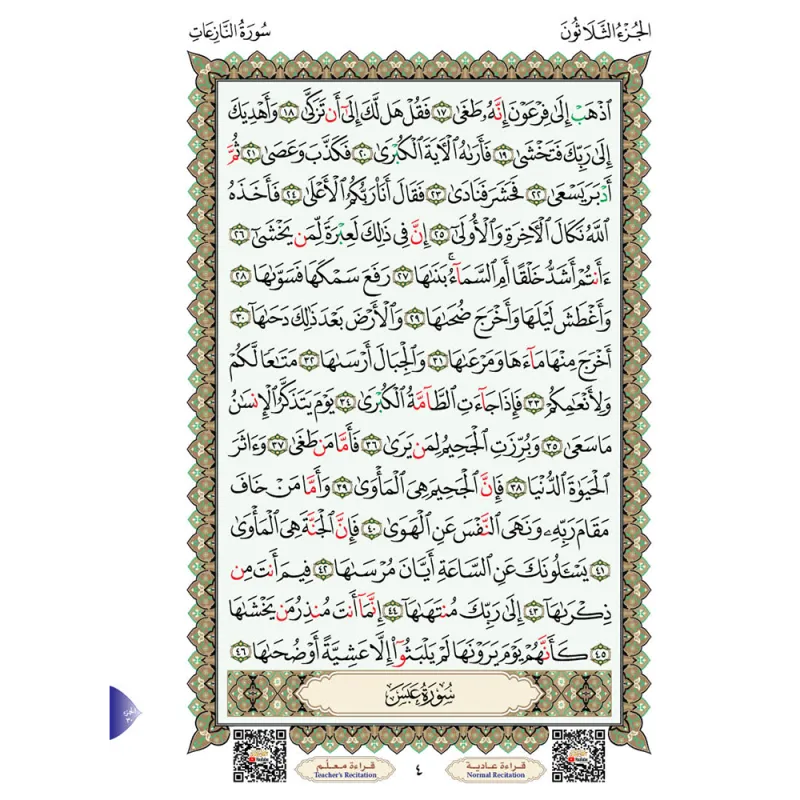 الجزء الثلاثون
سورة النازعات
ٱذْهَبْ إِلَىٰ فِرْعَوْنَ إِنَّهُۥ طَغَىٰ ١٧ فَقُلْ هَل لَّكَ إِلَىٰٓ أَن تَزَكَّىٰ ١٨ وَأَهْدِيَكَ
إِلَىٰ رَبِّكَ فَتَخْشَىٰ ١٩ فَأَرَىٰهُ ٱلْـَٔايَةَ ٱلْكُبْرَىٰ ٢٠ فَكَذَّبَ وَعَصَىٰ ٢١ ثُمَّ
أَدْبَرَ يَسْعَىٰ ٢٢ فَحَشَرَ فَنَادَىٰ ٢٣ فَقَالَ أَنَا۠ رَبُّكُمُ ٱلْأَعْلَىٰ ٢٤ فَأَخَذَهُ
ٱللَّهُ نَكَالَ ٱلْـَٔاخِرَةِ وَٱلْأُولَىٰٓ ٢٥ إِنَّ فِى ذَٰلِكَ لَعِبْرَةً لِّمَن يَخْشَىٰٓ ٢٦
ءَأَنتُمْ أَشَدُّ خَلْقًا أَمِ ٱلسَّمَآءُ ۚ بَنَىٰهَا ٢٧ رَفَعَ سَمْكَهَا فَسَوَّىٰهَا ٢٨
وَأَغْطَشَ لَيْلَهَا وَأَخْرَجَ ضُحَىٰهَا ٢٩ وَٱلْأَرْضَ بَعْدَ ذَٰلِكَ دَحَىٰهَآ ٣٠
أَخْرَجَ مِنْهَا مَآءَهَا وَمَرْعَىٰهَا ٣١ وَٱلْجِبَالَ أَرْسَىٰهَا ٣٢ مَتَـٰعًا لَّكُمْ
وَلِأَنْعَـٰمِكُمْ ٣٣ فَإِذَا جَآءَتِ ٱلطَّآمَّةُ ٱلْكُبْرَىٰ ٣٤ يَوْمَ يَتَذَكَّرُ ٱلْإِنسَـٰنُ
مَا سَعَىٰ ٣٥ وَبُرِّزَتِ ٱلْجَحِيمُ لِمَن يَرَىٰ ٣٦ فَأَمَّا مَن طَغَىٰ ٣٧ وَءَاثَرَ
ٱلْحَيَوٰةَ ٱلدُّنْيَا ٣٨ فَإِنَّ ٱلْجَحِيمَ هِىَ ٱلْمَأْوَىٰ ٣٩ وَأَمَّا مَنْ خَافَ
مَقَامَ رَبِّهِۦ وَنَهَى ٱلنَّفْسَ عَنِ ٱلْهَوَىٰ ٤٠ فَإِنَّ ٱلْجَنَّةَ هِىَ ٱلْمَأْوَىٰ
٤١ يَسْـَٔلُونَكَ عَنِ ٱلسَّاعَةِ أَيَّانَ مُرْسَىٰهَا ٤٢ فِيمَ أَنتَ مِن
ذِكْرَىٰهَآ ٤٣ إِلَىٰ رَبِّكَ مُنتَهَىٰهَآ ٤٤ إِنَّمَآ أَنتَ مُنذِرُ مَن يَخْشَىٰهَا
٤٥ كَأَنَّهُمْ يَوْمَ يَرَوْنَهَا لَمْ يَلْبَثُوٓا۟ إِلَّا عَشِيَّةً أَوْ ضُحَىٰهَا ٤٦
سُورَةُ عَبَسَ
قراءة عادية
Normal Recitation
٤
قراءة معلّم
Teacher's Recitation